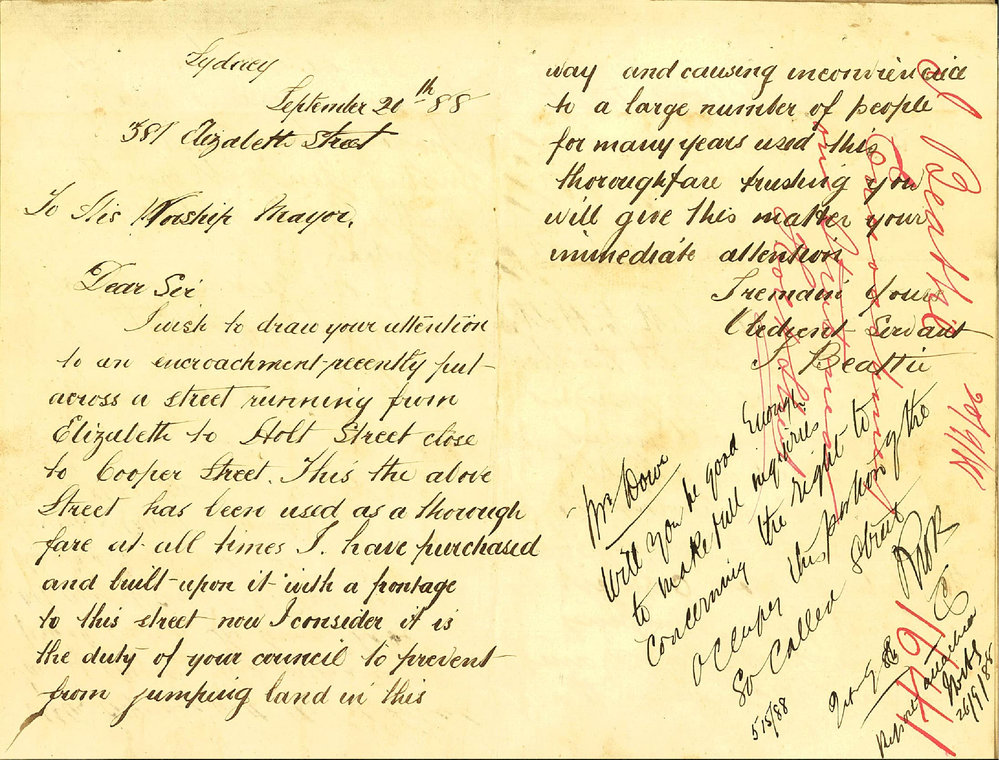 Sydney
September 20th 88
381 Elizabeth Street
To His Worship Mayor,
Dear Sir
I wish to draw your attention
to an encroachment recently put
across a street running from
Elizabeth to Holt Street close
to Cooper Street. This the above
Street has been used as a thorough
fare at all times I. have purchased
and built upon it with a frontage
to this street now I consider it is
the duty of your council to prevent
from jumping land in this
way and causing inconvenience
to a large number of people
for many years used this
thoroughfare trusting you
will give this matter your
immediate attention
I remain Yours
Obedient Servant
J. Beattie
Mr Dowe
Will you be good enough
to make full inquiries
concerning the right to
occupy this portion of the
So Called Street
26/9/88
Beattie